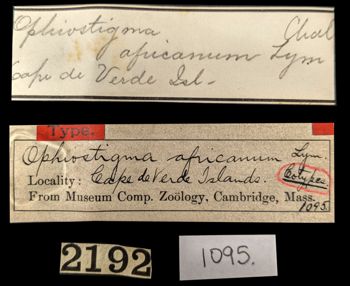 Ophiostigma Chal
africanum Lym
Cape de Verde Isl-
Type.
Ophiostigma africanum Lym.
Locality: Cape de Verde Islands. Cotypes
From Museum Comp. Zoölogy, Cambridge, Mass.
1095.
2192
1095.